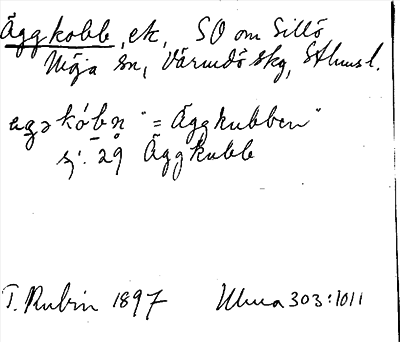 Äggkobb, ek, SO om Sillö
Möja sn, Värmdö skg, Sthms l.
"= Äggkubben"
sj. 29 Äggkubb
T. Rubin 1897 Ulma 303:1011